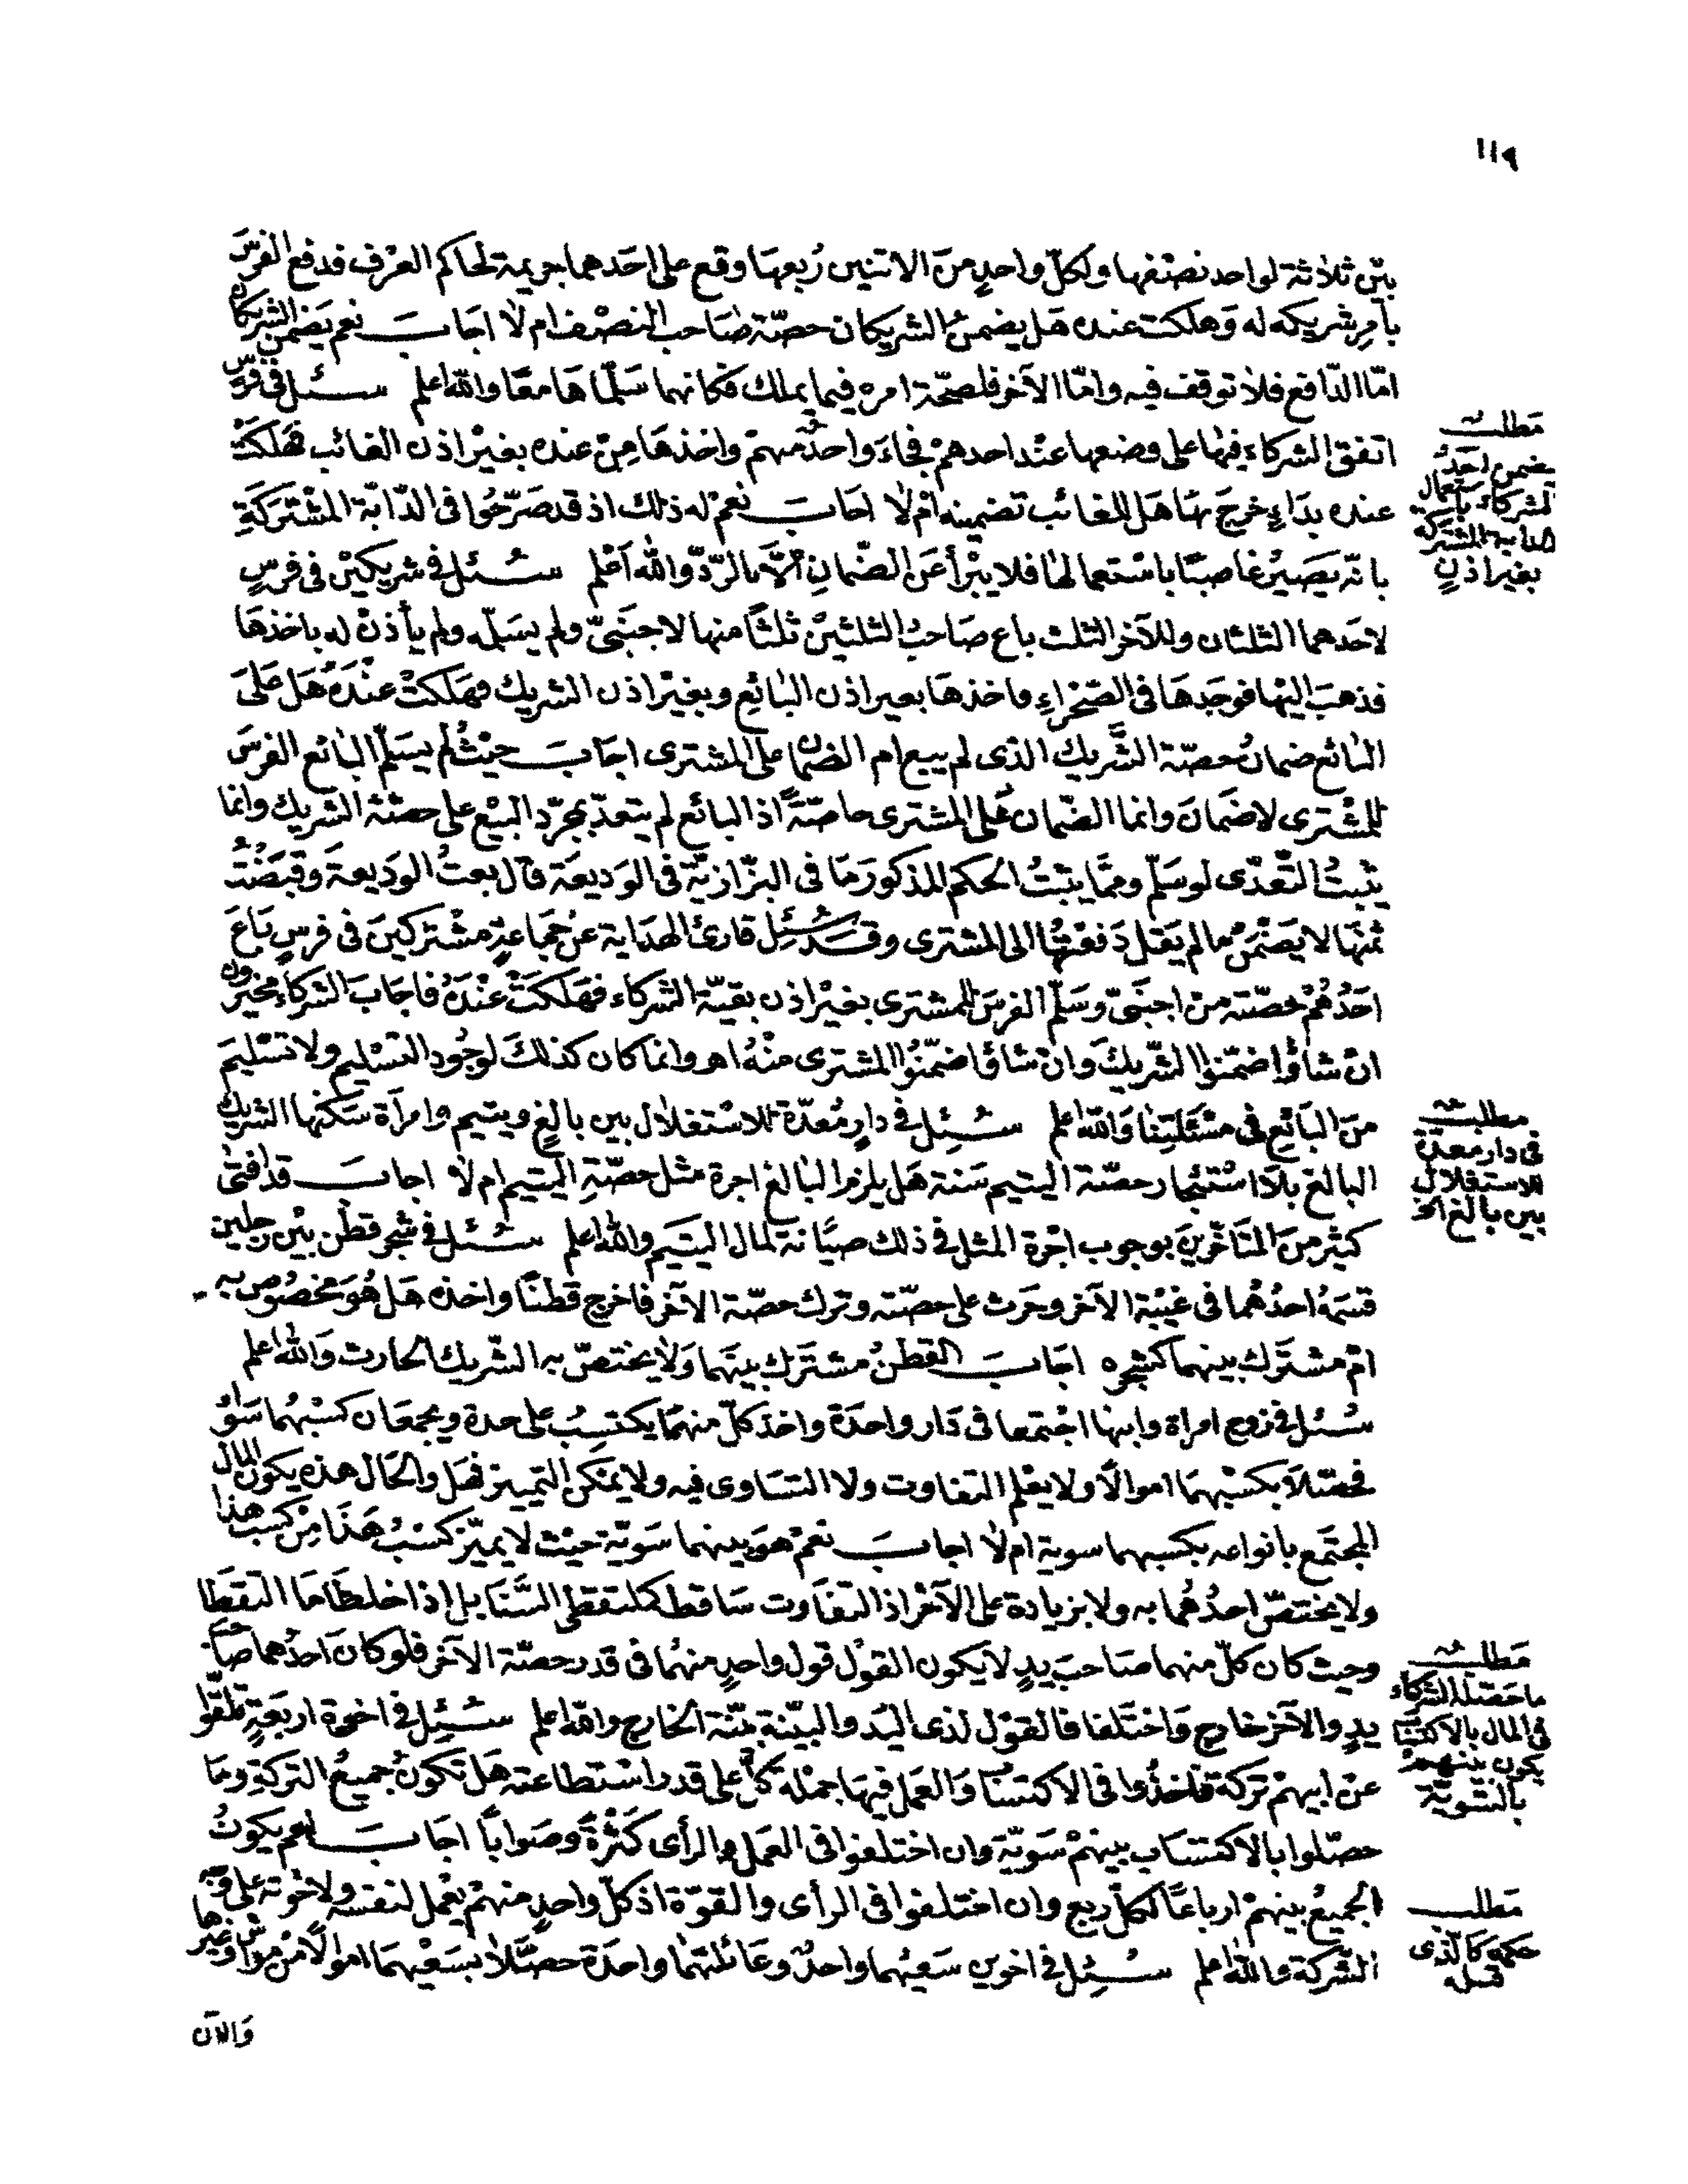 ١١٩
بين ثلاثة لواحد نصفها ولكل واحد من الاثنين ربعها وقع على احدهما جريمة لحاكم العرف فدفع الفرس
بامر شريكه له وهلكت عنده هل يضمن الشريكان حصة صاحب النصف ام لا اجاب نعم يضمن الشريكان
اما الدافع فلا توقف فيه واما الآخر فلصحة امره فيما يملك فكانهما سلماها معا والله اعلم سئل في فرس
اتفق الشركاء فيها على وضعها عند احدهم فجاء واحد منهم واخذها من عنده بغير اذن الغائب فهلكت
عنده بداء خرج بها هل للغائب تضمينه ام لا اجاب نعم له ذلك اذ قد صرحوا فى الدابة المشتركة
بانه يصير غاصبا باستعمالها فلا يبرأ عن الضمان الا بالرد والله اعلم سئل في شريكين فى فرس
لاحدهما الثلثان وللآخر الثلث باع صاحب الثلثين ثلثا منها لاجنبى ولم يسلمه ولم يأذن له باخذها
فذهب اليها فوجدها فى الصحراء واخذها بغير اذن البائع وبغير اذن الشريك فهلكت عنده هل على
البائع ضمان حصة الشريك الذى لم يبع ام الضمان على المشترى اجاب حيث لم يسلم البائع الفرس
للمشترى لا ضمان وانما الضمان على المشترى خاصة اذ البائع لم يتعد بمجرد البيع على حصة الشريك وانما
يثبت التعدى لو سلم ومما يثبت الحكم المذكور ما فى البزازية فى الوديعة قال بعت الوديعة وقبضت
ثمنها لا يضمن ما لم يقل دفعتها الى المشترى وقد سئل قارئ الهداية عن جماعة مشتركين فى فرس باع
احدهم حصته من اجنبى وسلم الفرس للمشترى بغير اذن بقية الشركاء فهلكت عنده فاجاب الشركاء مخيرون
ان شاؤا ضمنوا الشريك وان شاؤا ضمنوا المشترى منه اهـ وانما كان كذلك لوجود التسليم ولا تسليم
من البائع فى مسئلتنا والله اعلم سئل في دار معدة للاستغلال بين بالغ ويتيم وامرأة سكنها الشريك
البالغ بلا استئجار حصة اليتيم سنة هل يلزم البالغ اجرة مثل حصة اليتيم ام لا اجاب قد افتى
كثير من المتأخرين بوجوب اجرة المثل في ذلك صيانة لمال اليتيم والله اعلم سئل في شجر قطن بين رجلين
قسمه احدهما فى غيبة الآخر وحرث على حصته وترك حصة الآخر فاخرج قطنا واخذه هل هو مخصوص به
ام مشترك بينهما كشجره اجاب القطن مشترك بينهما ولا يختص به الشريك الحارث والله اعلم
سئل في زوج امراة وابنها اجتمعا فى دار واحدة واخذ كل منهما يكتسب على حدة ويجمعان كسبهما سواء
فحصلا بكسبهما اموالا ولا يعلم التفاوت ولا التساوى فيه ولا يمكن التمييز فهل والحال هذه يكون المال
المجتمع بانواعه بكسبهما سوية ام لا اجاب نعم هو بينهما سوية حيث لا يميز كسب هذا من كسب هذا
ولا يختص احدهما به ولا بزيادة على الآخر اذ التفاوت ساقط كملتقطى السنابل اذا خلطا ما التقطا
وحيث كان كل منهما صاحب يد لا يكون القول قول واحد منهما فى قدر حصة الآخر فلو كان احدهما صاحب
يد والآخر خارج واختلفا فالقول لذى اليد والبينة بينة الخارج والله اعلم سئل في اخوة اربعة تلقوا
عن ابيهم تركة فاخذوا فى الاكتساب والعمل فيها جملة كل على قدر استطاعته هل تكون جميع التركة وما
حصلوا بالاكتساب بينهم سوية وان اختلفوا فى العمل والرأى كثرة وصوابا اجاب نعم يكون
الجميع بينهم ارباعا لكل ربع وان اختلفوا فى الرأى والقوة اذ كل واحد منهم يعمل لنفسه ولاخوته على وجه
الشركة والله اعلم سئل في اخوين سعيهما واحد وعائلتهما واحدة حصلا بسعيهما اموالا من مواش وغيرها
والآن
مطلب
يضمن احد
الشركاء باستعمال
الدابة المشتركة
بغير اذن
مطلب
فى دار معدة
للاستغلال
بين بالغ الخ
مطلب
ما حصله الشركاء
فى المال بالاكتساب
يكون بينهم
بالسوية
مطلب
حكمه كالذى
قبله